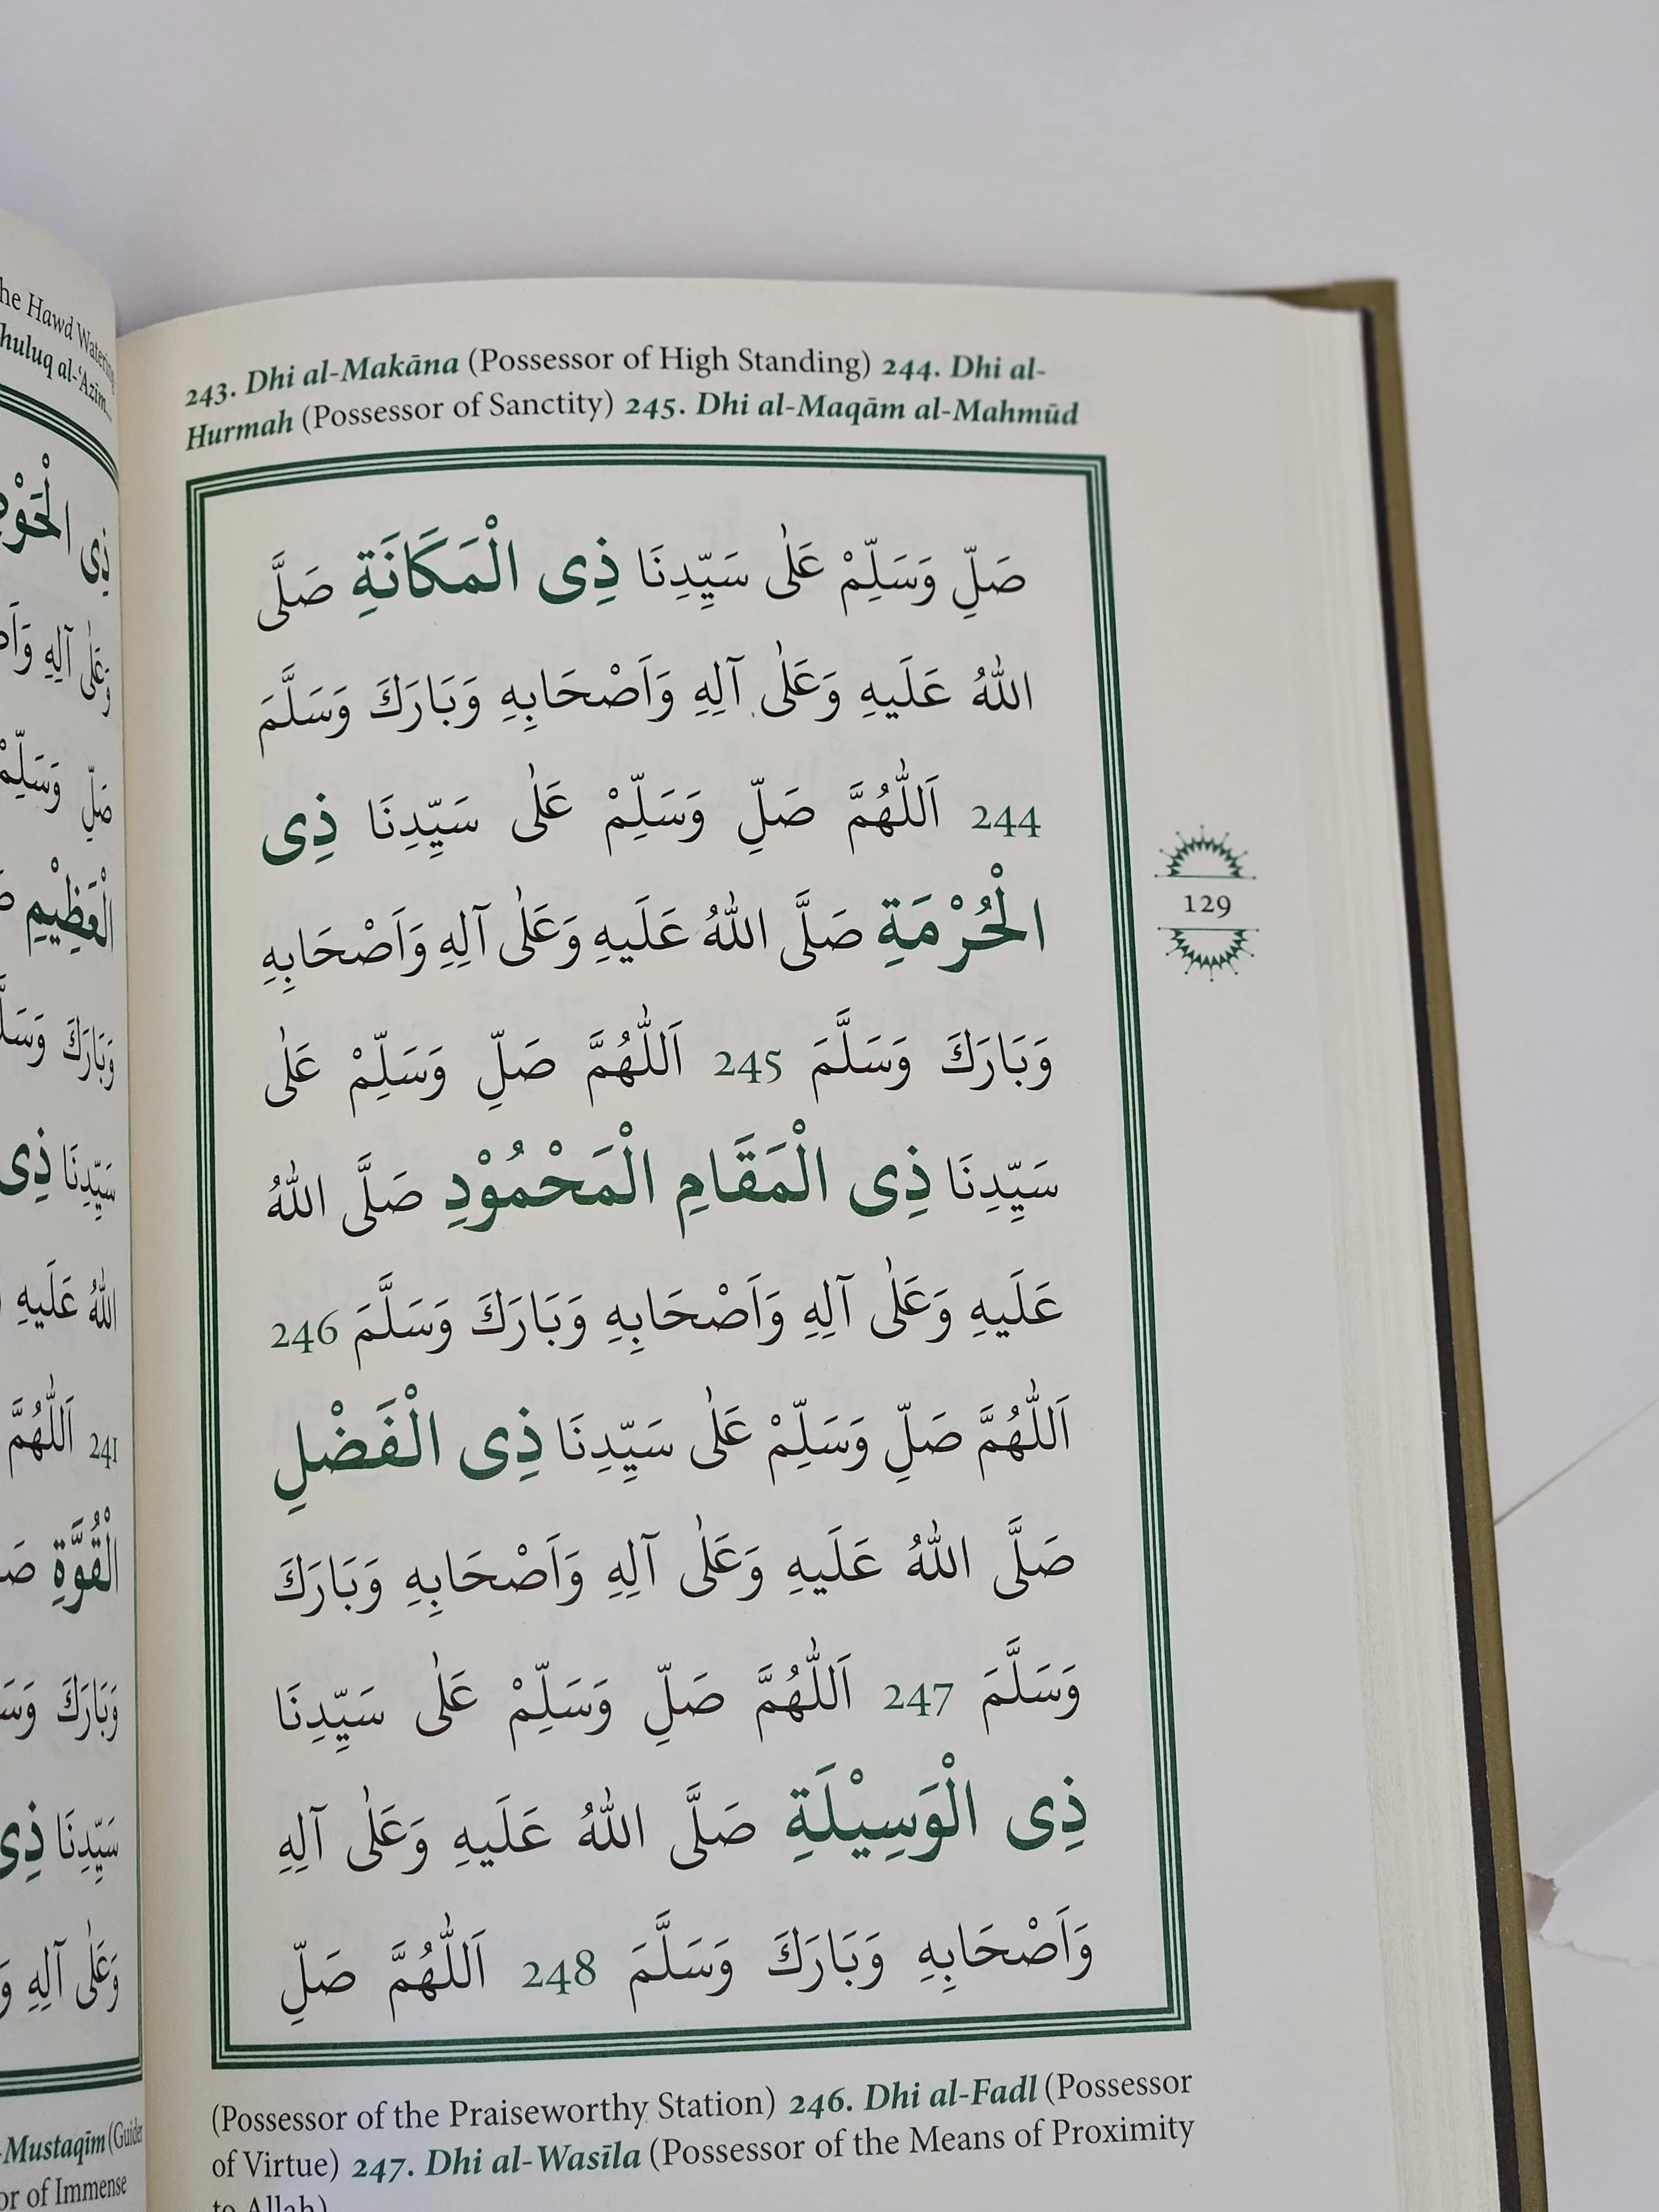 he Hawd Watering
huluq al-'Azīm
ذِى الْحَوْضِ
وَعَلٰى آلِهِ
صَلِّ وَسَلِّمْ
الْعَظِيْمِ
وَبَارَكَ
سَيِّدِنَا ذِى
اللهُ عَلَيهِ
241 اَللّٰهُمَّ
الْقُوَّةِ
وَبَارَكَ
سَيِّدِنَا ذِى
وَعَلٰى آلِهِ
-Mustaqīm (Guider
or of Immense
243. Dhi al-Makāna (Possessor of High Standing) 244. Dhi al-
Hurmah (Possessor of Sanctity) 245. Dhi al-Maqām al-Mahmūd
صَلِّ وَسَلِّمْ عَلٰى سَيِّدِنَا ذِى الْمَكَانَةِ صَلَّى
اللهُ عَلَيهِ وَعَلٰى آلِهِ وَاَصْحَابِهِ وَبَارَكَ وَسَلَّمَ
244 اَللّٰهُمَّ صَلِّ وَسَلِّمْ عَلٰى سَيِّدِنَا ذِى
الْحُرْمَةِ صَلَّى اللهُ عَلَيهِ وَعَلٰى آلِهِ وَاَصْحَابِهِ
وَبَارَكَ وَسَلَّمَ 245 اَللّٰهُمَّ صَلِّ وَسَلِّمْ عَلٰى
سَيِّدِنَا ذِى الْمَقَامِ الْمَحْمُوْدِ صَلَّى اللهُ
عَلَيهِ وَعَلٰى آلِهِ وَاَصْحَابِهِ وَبَارَكَ وَسَلَّمَ 246
اَللّٰهُمَّ صَلِّ وَسَلِّمْ عَلٰى سَيِّدِنَا ذِى الْفَضْلِ
صَلَّى اللهُ عَلَيهِ وَعَلٰى آلِهِ وَاَصْحَابِهِ وَبَارَكَ
وَسَلَّمَ 247 اَللّٰهُمَّ صَلِّ وَسَلِّمْ عَلٰى سَيِّدِنَا
ذِى الْوَسِيْلَةِ صَلَّى اللهُ عَلَيهِ وَعَلٰى آلِهِ
وَاَصْحَابِهِ وَبَارَكَ وَسَلَّمَ 248 اَللّٰهُمَّ صَلِّ
129
(Possessor of the Praiseworthy Station) 246. Dhi al-Fadl (Possessor
of Virtue) 247. Dhi al-Wasīla (Possessor of the Means of Proximity
to Allah)